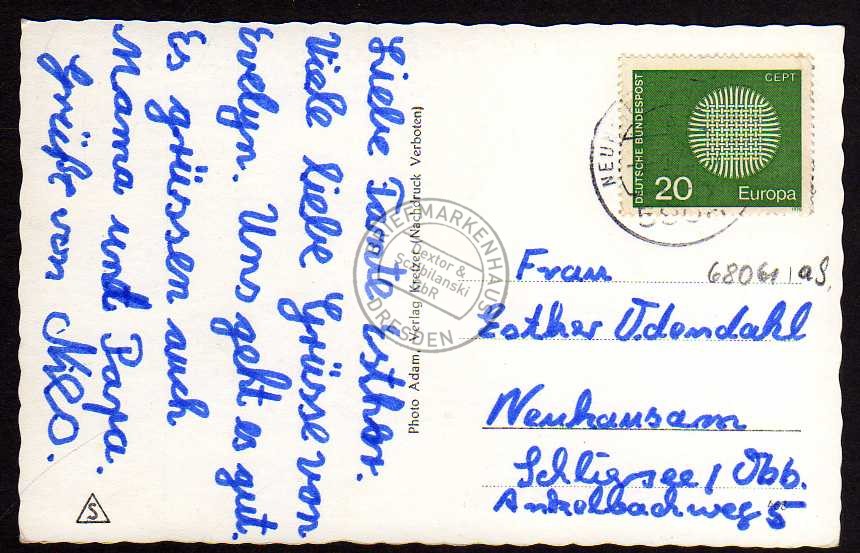 Liebe Tante Esther.
Viele liebe Grüsse von
Evelyn. Uns geht es gut.
Es grüssen auch
Mama und Papa.
Grüße von Nico.
Photo Adam, Verlag Kretzer (Nachdruck Verboten)
S
DEUTSCHE BUNDESPOST
CEPT
20
Europa
NEUN
BRIEFMARKENHAUS
Dextor &
Schibilanski
GbR
DRESDEN
68061 as.
Frau
Esther Udendahl
Neuhausam
Schliersee / Obb.
Ankelbachweg 5